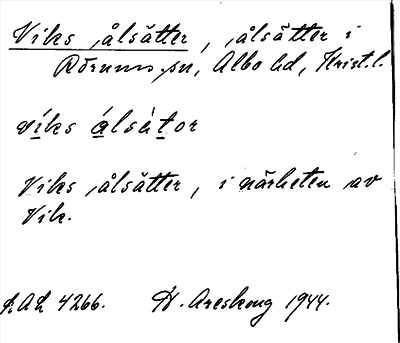 Viks ålsätter, ålsätter i
Rörums sn, Albo hd, Krist. l.
víks álsátor
Viks ålsätter, i närheten av
Vik.
LAL 4266. H. Areskoug 1944.